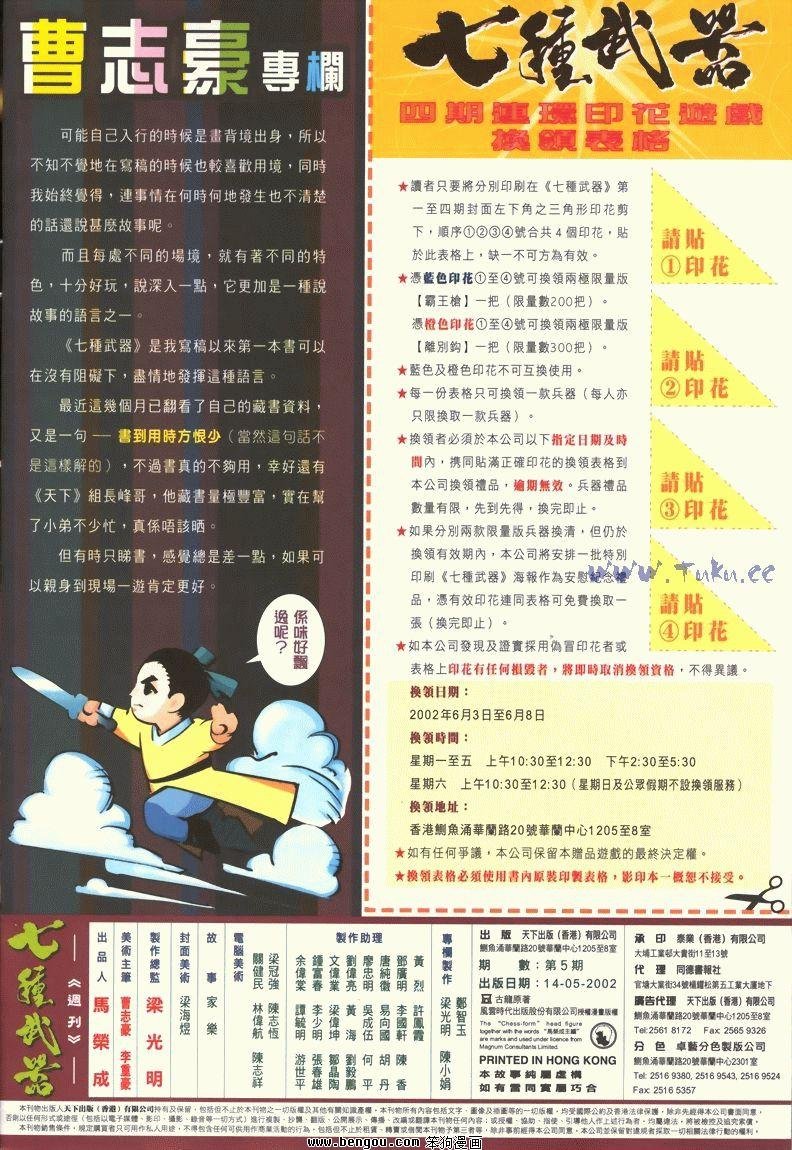 曹志豪專欄
可能自己入行的時候是畫背境出身，所以
不知不覺地在寫稿的時候也較喜歡用境，同時
我始終覺得，連事情在何時何地發生也不清楚
的話還說甚麼故事呢。
而且每處不同的場境，就有著不同的特
色，十分好玩，說深入一點，它更加是一種說
故事的語言之一。
《七種武器》是我寫稿以來第一本書可以
在沒有阻礙下，盡情地發揮這種語言。
最近這幾個月已翻看了自己的藏書資料，
又是一句 ── 書到用時方恨少（當然這句話不
是這樣解的），不過書真的不夠用，幸好還有
《天下》組長峰哥，他藏書量極豐富，實在幫
了小弟不少忙，真係唔該晒。
但有時只睇書，感覺總是差一點，如果可
以親身到現場一遊肯定更好。
係咪好飄
逸呢？
七種武器
四期連環印花遊戲
換領表格
★讀者只要將分別印刷在《七種武器》第
一至四期封面左下角之三角形印花剪
下，順序①②③④號合共4個印花，貼
於此表格上，缺一不可方為有效。
★憑藍色印花①至④號可換領兩極限量版
【霸王槍】一把（限量數200把）。
憑橙色印花①至④號可換領兩極限量版
【離別鈎】一把（限量數300把）。
★藍色及橙色印花不可互換使用。
★每一份表格只可換領一款兵器（每人亦
只限換取一款兵器）。
★換領者必須於本公司以下指定日期及時
間內，携同貼滿正確印花的換領表格到
本公司換領禮品，逾期無效。兵器禮品
數量有限，先到先得，換完即止。
★如果分別兩款限量版兵器換清，但仍於
換領有效期內，本公司將安排一批特別
印刷《七種武器》海報作為安慰紀念禮
品，憑有效印花連同表格可免費換取一
張（換完即止）。
★如本公司發現及證實採用偽冒印花者或
表格上印花有任何損毀者，將即時取消換領資格，不得異議。
請貼
①印花
請貼
②印花
請貼
③印花
請貼
④印花
www.Tuku.cc
換領日期：
2002年6月3日至6月8日
換領時間：
星期一至五 上午10:30至12:30 下午2:30至5:30
星期六 上午10:30至12:30（星期日及公眾假期不設換領服務）
換領地址：
香港鰂魚涌華蘭路20號華蘭中心1205至8室
★如有任何爭議，本公司保留本贈品遊戲的最終決定權。
★換領表格必須使用書內原裝印製表格，影印本一概恕不接受。
七種武器
《週刊》
出品人 馬榮成
美術主筆 曹志豪 李重豪
製作總監 梁光明
封面美術 梁海煜
故事 家樂
電腦美術
梁冠強 陳志恆
關健民 林偉航 陳志祥
製作助理
黃烈 許鳳霞
鄧廣明 李國軒 陳香
唐純徽 易向國 胡丹
廖忠明 吳成伍 何平
劉偉亮 黃海 劉毅鵬
文偉業 梁偉坤 鄒晶陶
鍾富春 李少明 張春雄
余偉棠 譚毓明 游世平
專欄製作
鄭智玉
梁光明 陳小娟
出版 天下出版（香港）有限公司
鰂魚涌華蘭路20號華蘭中心1205至8室
期數：第5期
出版日期：14-05-2002
古龍原著
風雲時代出版股份有限公司授權漫畫版權
The "Chess-form" head figure
together with the words "馬榮成主編"
are marks and used under licence from
Magnum Consultants Limited.
PRINTED IN HONG KONG
本故事純屬虛構
如有雷同實屬巧合
承印 泰業（香港）有限公司
大埔工業邨大貴街11至13號
代理 同德書報社
官塘大業街34號楊耀松第五工業大廈地下
廣告代理 天下出版（香港）有限公司
鰂魚涌華蘭路20號華蘭中心1205至8室
Tel:2561 8172 Fax:2565 9326
分色 卓藝分色製版公司
鰂魚涌華蘭路20號華蘭中心2301室
Tel: 2516 9380, 2516 9543, 2516 9524
Fax: 2516 5357
本刊物出版人天下出版（香港）有限公司持有及保留，包括但不止於本刊物之一切版權及其他有關知識產權。本刊物所有內容包括文字、圖像及插圖等的一切版權，均受國際公約及香港法律保護，除非先經得本公司書面同意，
www.bengou.com 笨狗漫画